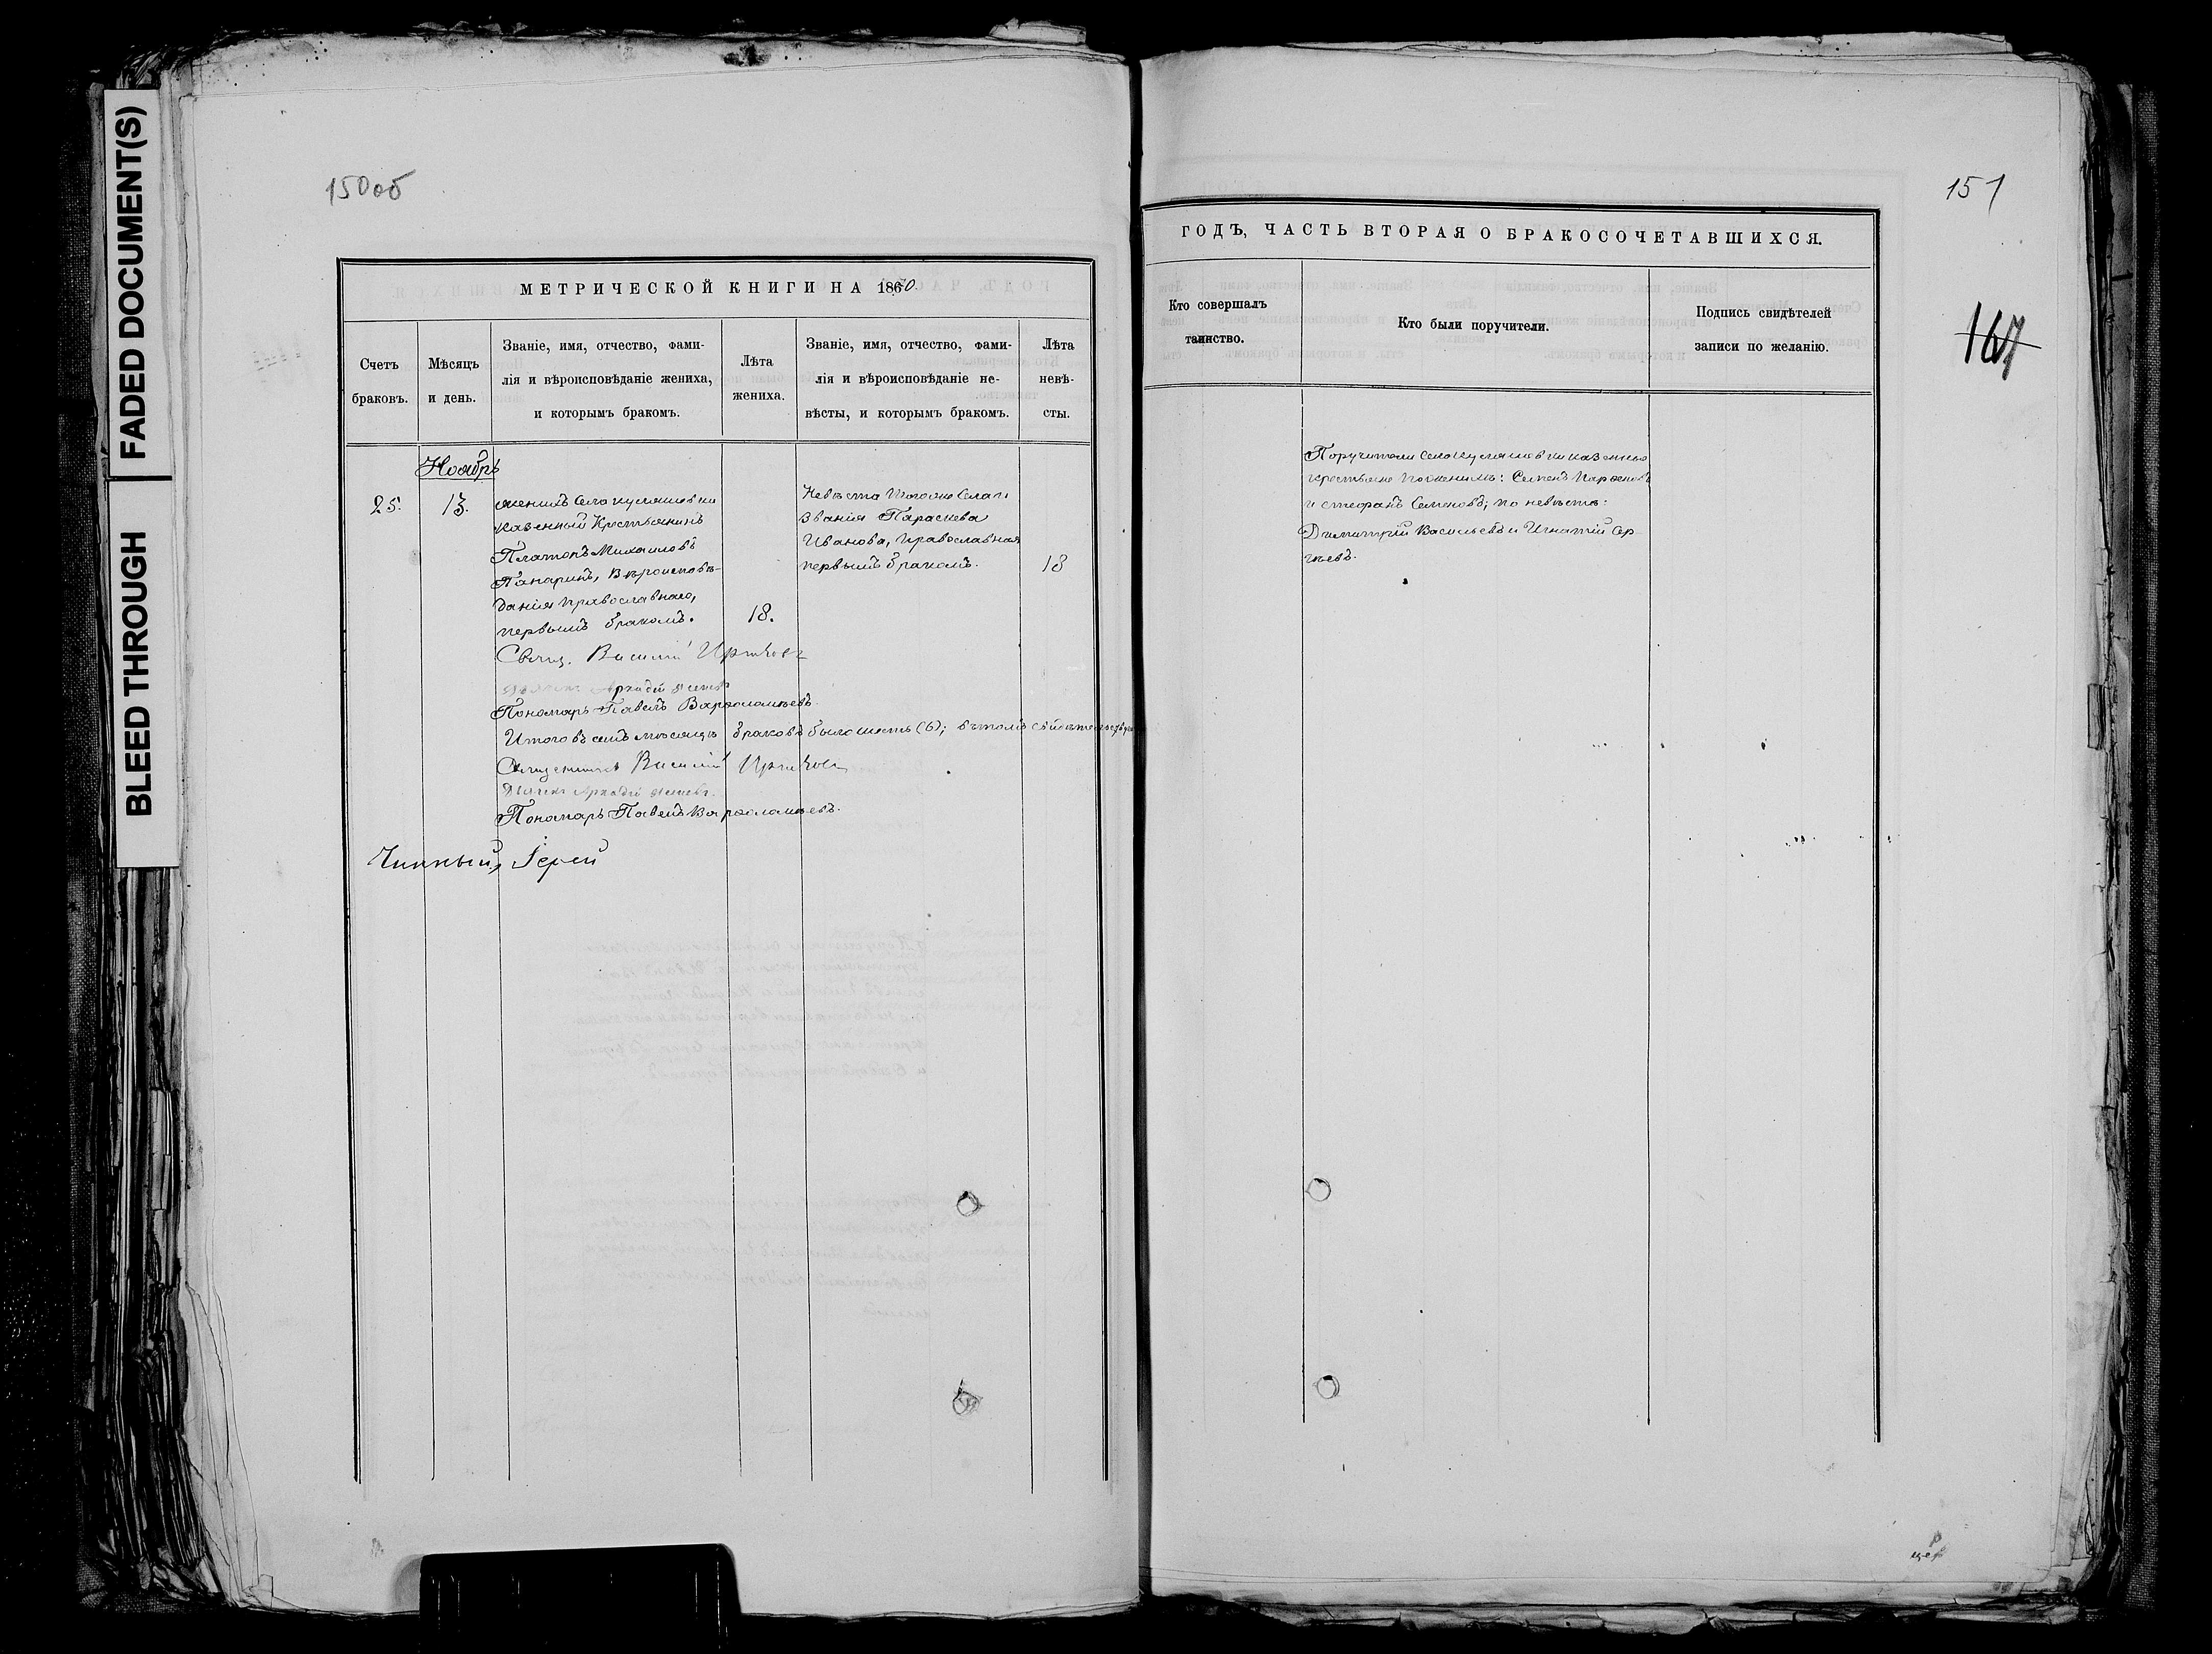 FADED DOCUMENT(S)
BLEED THROUGH
150об
МЕТРИЧЕСКОЙ КНИГИ НА 1860.
Счетъ браковъ.
Мѣсяцъ и день.
Званіе, имя, отчество, фами-
лія и вѣроисповѣданіе жениха,
и которымъ бракомъ.
Лѣта жениха.
Званіе, имя, отчество, фами-
лія и вѣроисповѣданіе не-
вѣсты, и которымъ бракомъ.
Лѣта невѣ-
сты.
Ноябрь
25.
13.
женихъ села
казенный Крестьянинъ
Платонъ Михаиловъ
Панаринъ, вѣроисповѣ-
данія православнаго,
первымъ бракомъ.
18.
Невѣста тогоже села и
званія Параскева
Иванова, православная
первымъ бракомъ.
18
Свящ. Василій
Аркадій
Пономарь Павелъ Варѳоломѣевъ.
Итого въ семъ мѣсяцѣ браковъ было шесть (6); въ томъ
Священникъ Василій
Аркадій
Пономарь Павелъ Варѳоломѣевъ.
151
167
ГОДЪ, ЧАСТЬ ВТОРАЯ О БРАКОСОЧЕТАВШИХСЯ.
Кто совершалъ
таинство.
Кто были поручители.
Подпись свидѣтелей
записи по желанію.
Поручители села казенные
крестьяне по женихѣ: Семенъ Парѳеновъ
и Стефанъ Семеновъ; по невѣстѣ:
Димитрій Васильевъ и Игнатій Сер-
гѣевъ.